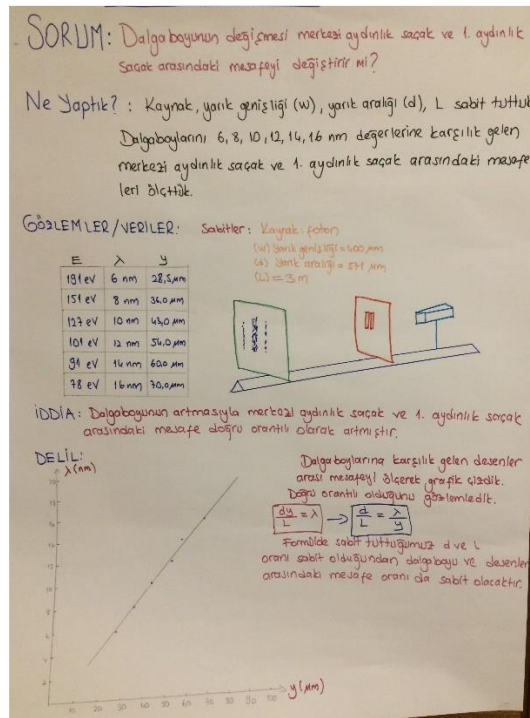 SORUM: Dalgaboyunun değişmesi merkezi aydınlık saçak ve 1. aydınlık
saçak arasındaki mesafeyi değiştirir mi?
Ne Yaptık? : Kaynak, yarık genişliği (w), yarık aralığı (d), L sabit tuttuk
Dalgaboylarını 6, 8, 10, 12, 14, 16 nm değerlerine karşılık gelen
merkezi aydınlık saçak ve 1. aydınlık saçak arasındaki mesafe
leri ölçtük.
GÖZLEMLER/VERİLER: Sabitler: Kaynak: foton
(w) yarık genişliği = 400 µm
(d) yarık aralığı = 571 µm
(L) = 3 m
E λ y
191 eV 6 nm 28,5 µm
151 eV 8 nm 36,0 µm
127 eV 10 nm 43,0 µm
101 eV 12 nm 54,0 µm
91 eV 14 nm 60,0 µm
78 eV 16 nm 70,0 µm
İDDİA: Dalgaboyunun artmasıyla merkezi aydınlık saçak ve 1. aydınlık saçak
arasındaki mesafe doğru orantılı olarak artmıştır.
DELİL:
λ(nm)
Dalgaboylarına karşılık gelen desenler
arası mesafeyi ölçerek grafik çizdik.
Doğru orantılı olduğunu gözlemledik.
dy/L = λ → d/L = λ/y
Formülde sabit tuttuğumuz d ve L
oranı sabit olduğundan dalgaboyu ve desenler
arasındaki mesafe oranı da sabit olacaktır.
10 20 30 40 50 60 70 80 90 100 y(µm)